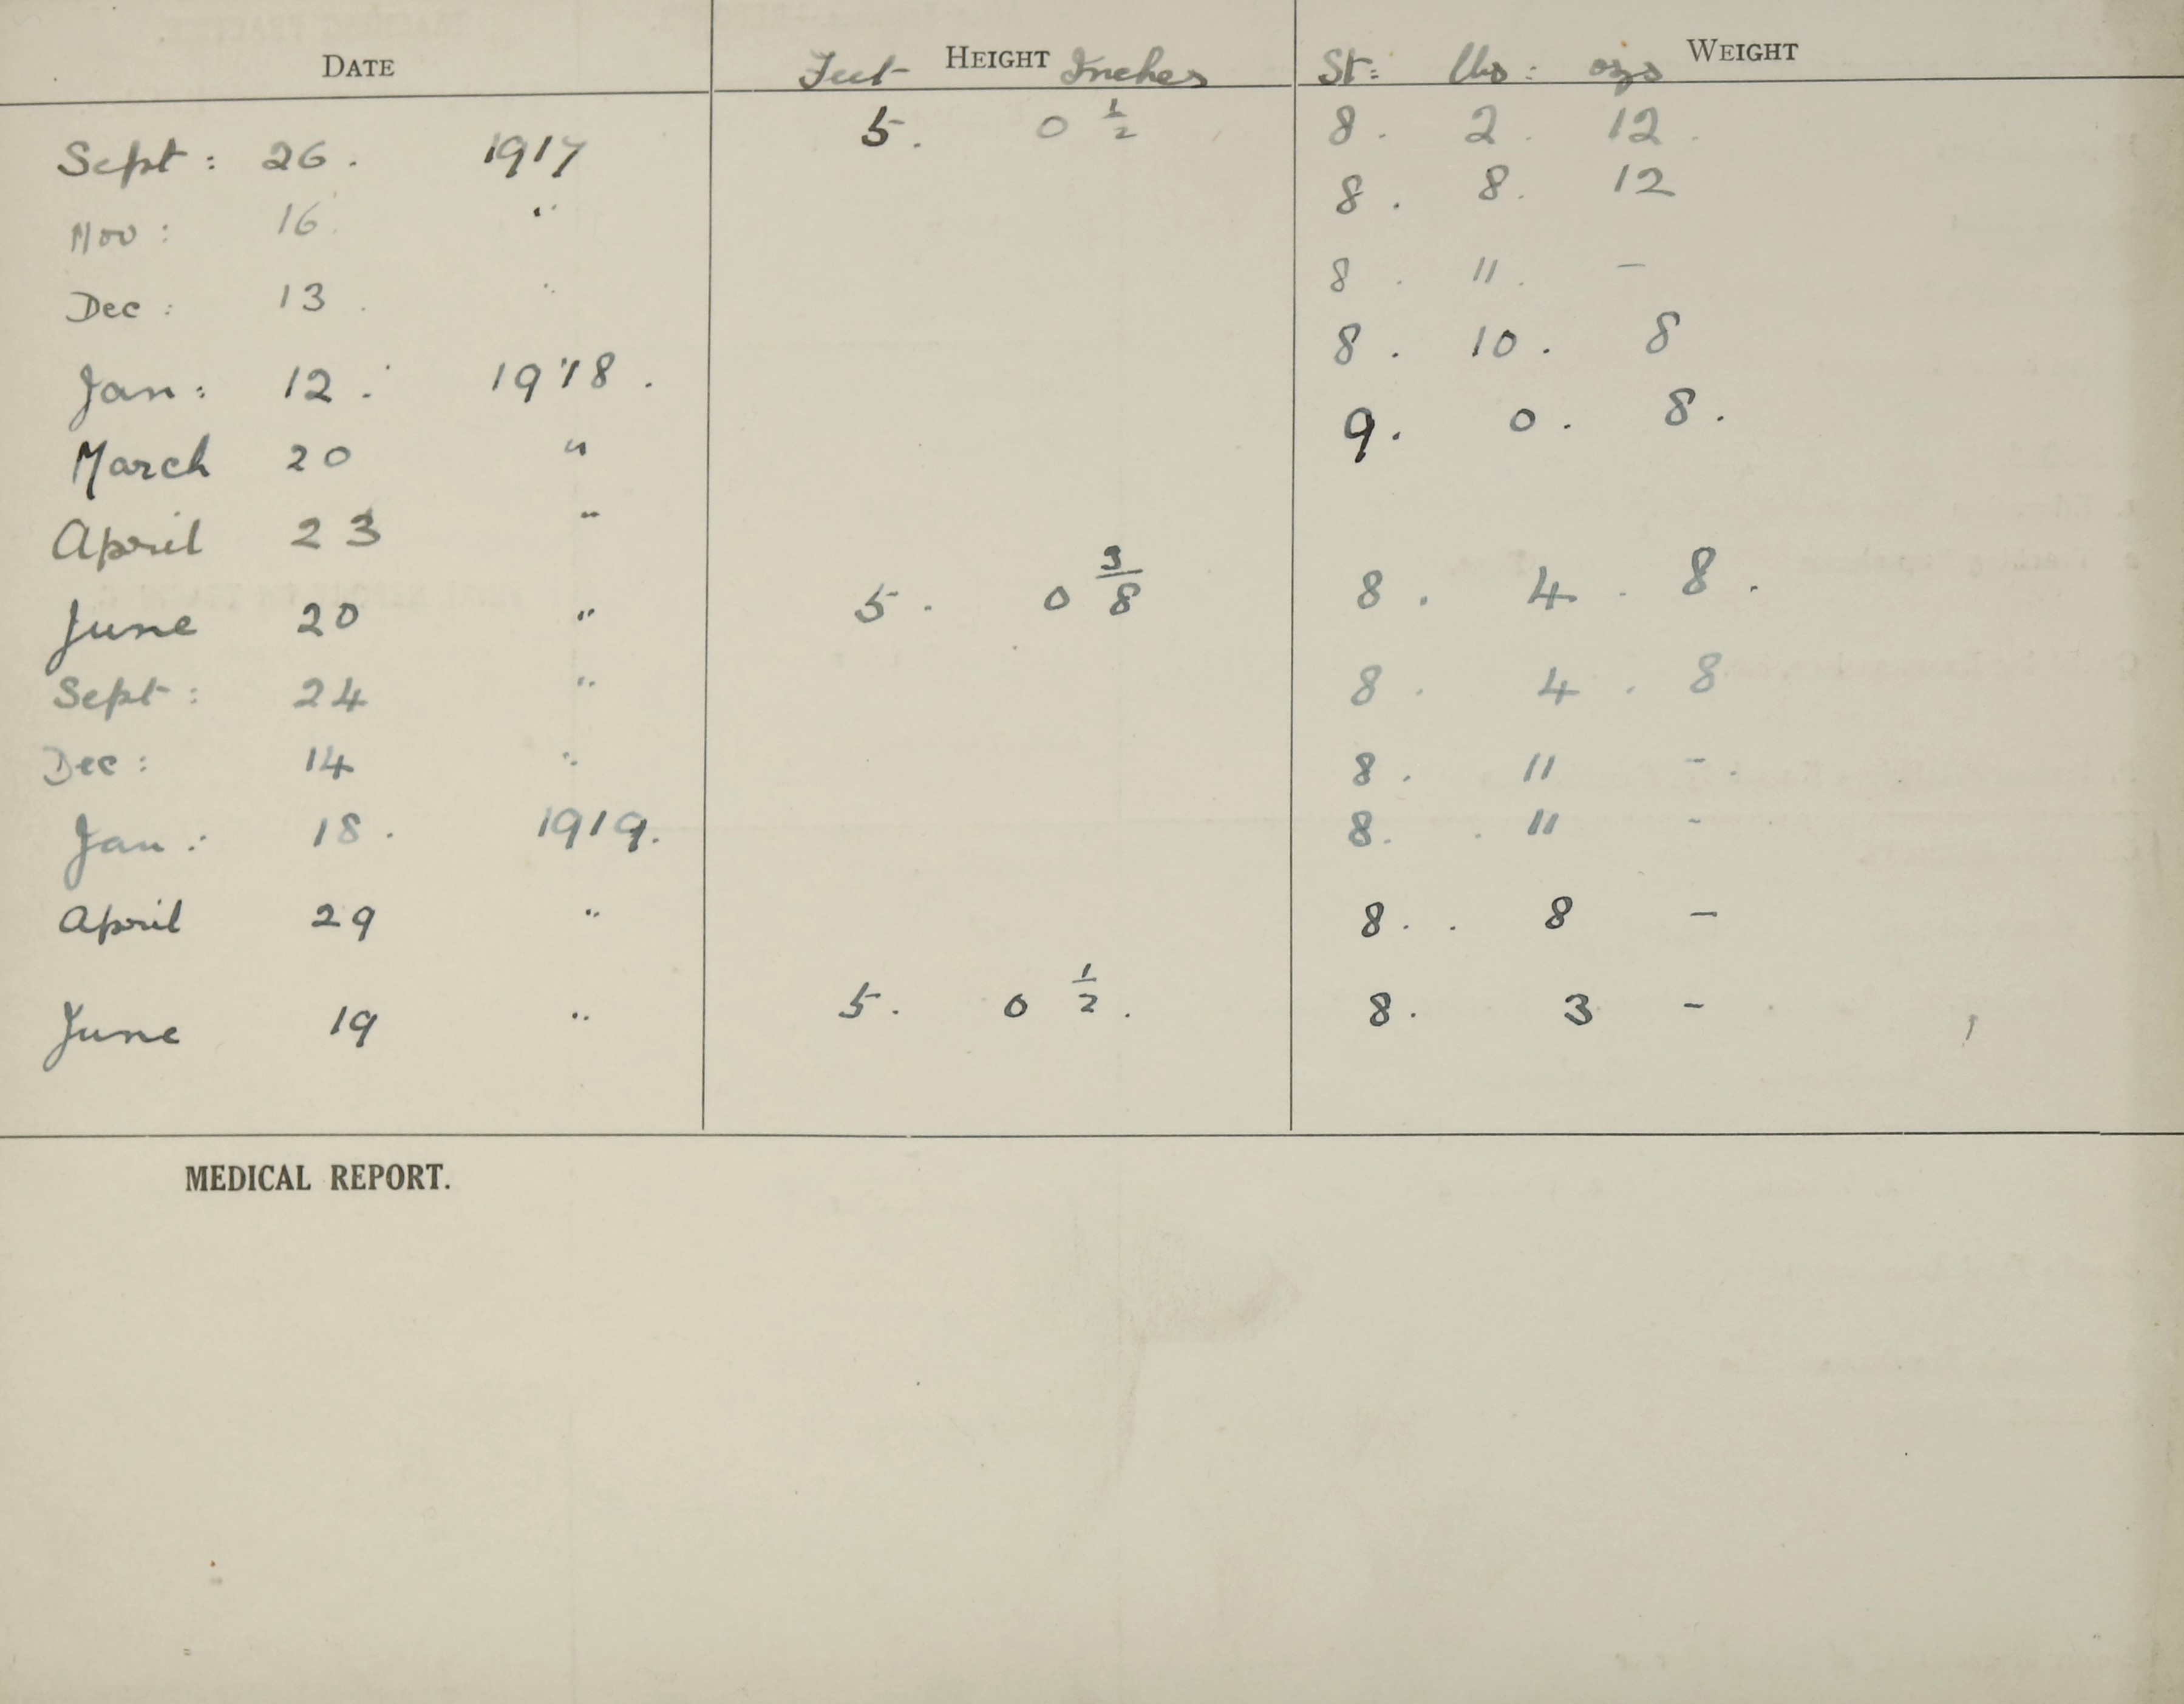 DATE Feet HEIGHT Inches St: lbs: ozs WEIGHT
Sept: 26. 1917 5. 0 1/2 8. 2. 12.
Nov: 16. " 8. 8. 12
Dec: 13. " 8. 11. -
Jan: 12. 1918. 8. 10. 8
March 20 " 9. 0. 8.
April 23 "
June 20 " 5. 0 3/8 8. 4. 8.
Sept: 24 " 8. 4. 8
Dec: 14 " 8. 11 -.
Jan: 18. 1919. 8. 11 -
April 29 " 8. 8 -
June 19 " 5. 0 1/2. 8. 3 -
MEDICAL REPORT.